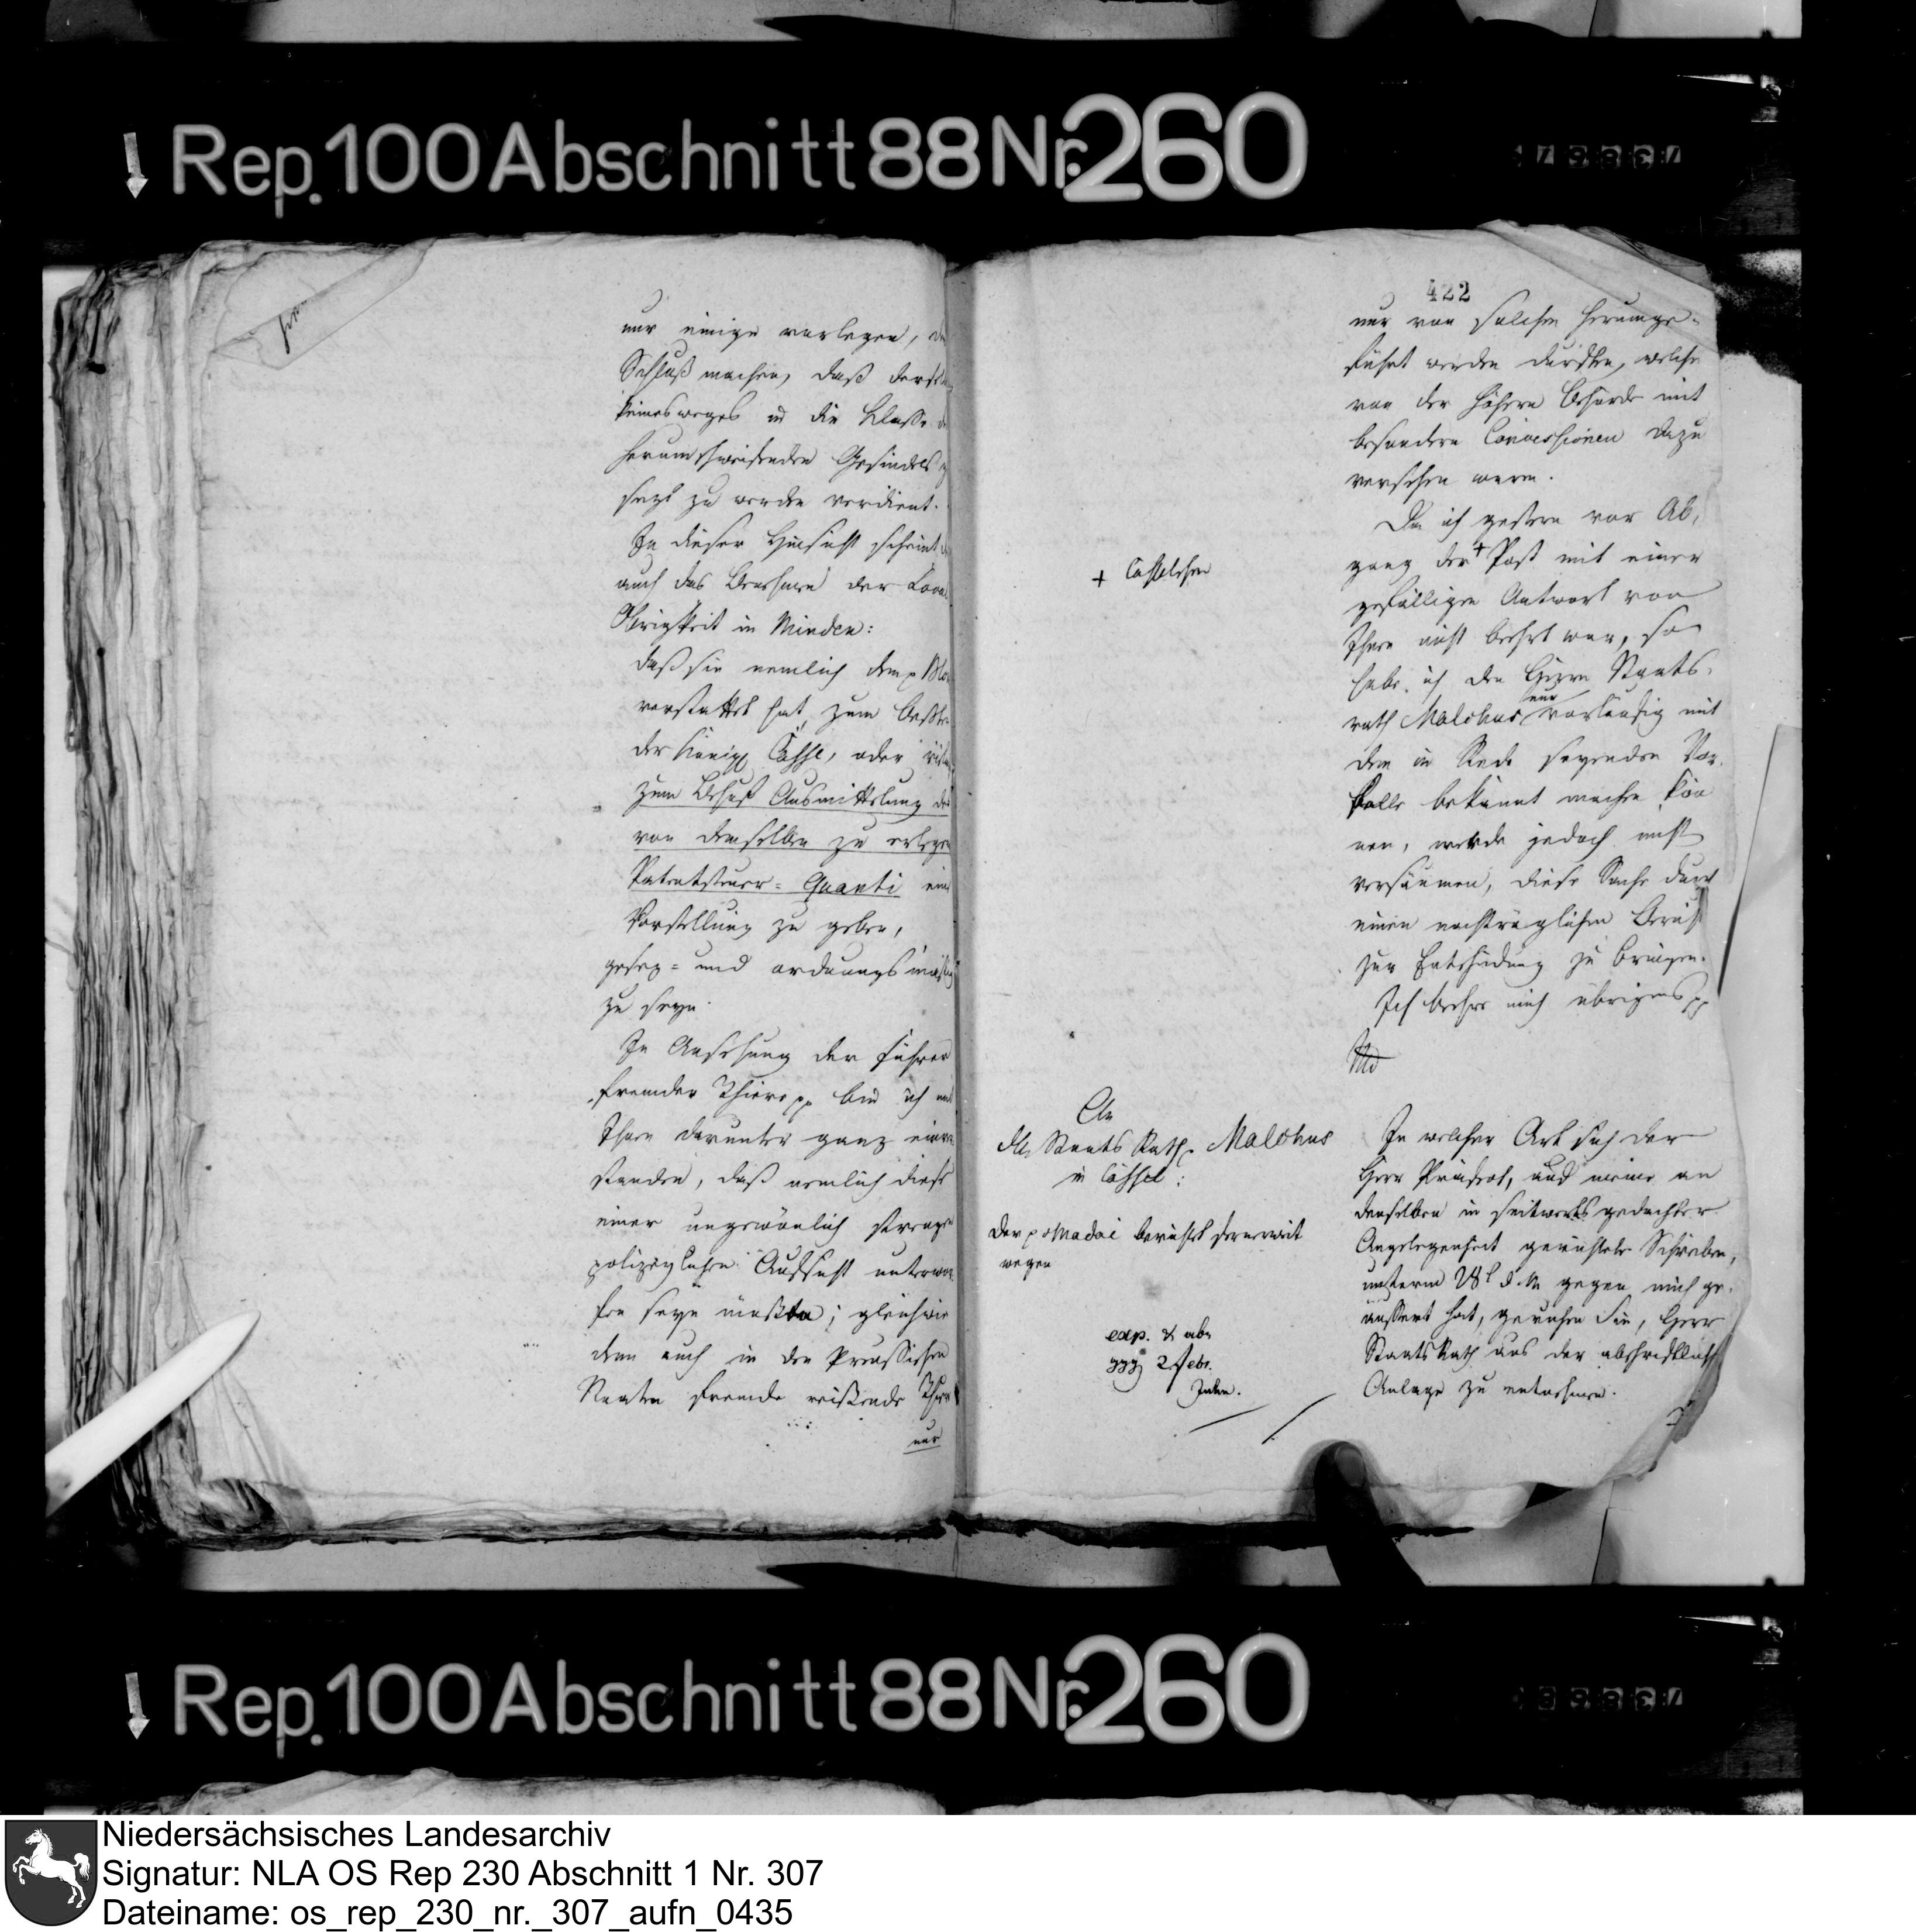 Rep. 100 Abschnitt 88 Nr. 260
nur einige vorlegen, den
Schluß machen, daß derselbe
keinesweges in die Classe des
herumschweifenden Gesindels
gesezt zu werden verdient.
In dieser Hinsicht scheint
auch das Benehmen der
Obrigkeit in Minden:
daß sie nemlich dem p
verstattet hat, zum besten
der Königl Casse, oder
zum Behuf Ausmittelung des
von demselben zu erlegen
Patentsteuer-Quanti eine
Vorstellung zu geben,
gesez- und ordnungsmäßig
zu seyn.
In Ansehung der Führer
fremder Thiere pp bin ich mit
Ihnen darunter ganz einver
standen, daß nemlich diese
einer ungewönlich strengen
polizeylichen Aufsicht unterwor
fen seyn müßten; gleichwie
denn auch in den Preussischen
Staaten fremde reißende Thiere
nur
422
nur von solchen herumge-
führt werden durften, welche
von der höhern Behörde mit
besondern Concessionen dazu
versehen waren.
Da ich gestern vor Ab-
gang der + Post mit einer
+ Casselschen
gefälligen Antwort von
Ihnen nicht beehrt war, so
habe ich den Herrn Staats-
rath Malchus nur vorläufig mit
dem in Rede seyenden Vor-
falle bekannt machen kön
nen, werde jedoch nicht
versäumen, diese Sache durch
einen nachträglichen Bericht
zur Entscheidung zu bringen.
Ich beehre mich übrigens pp
An
den Staats Rath Malchus
in Cassel:
Der p Madai berichtet
wegen
exp. & abg
2 Febr.
In welcher Art sich der
Herr Präfect, auf meine an
denselben in seitwerts gedachter
Angelegenheit gerichtete Schreiben,
unterm 28t d. M. gegen mich ge-
äussert hat, geruhen Sie, Herr
Staats Rath aus der abschriftlichen
Anlage zu entnehmen.
Rep. 100 Abschnitt 88 Nr. 260
Niedersächsisches Landesarchiv
Signatur: NLA OS Rep 230 Abschnitt 1 Nr. 307
Dateiname: os_rep_230_nr._307_aufn_0435